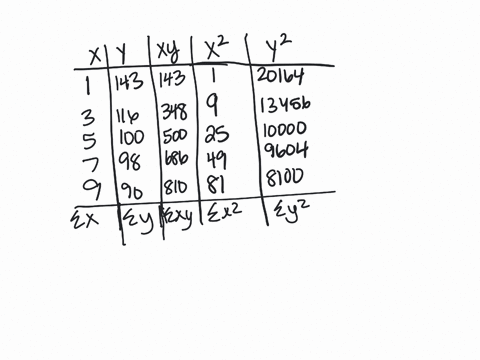 X Y XY X² Y²
1 143 143 1 20164
3 116 348 9 13456
5 100 500 25 10000
7 98 686 49 9604
9 90 810 81 8100
Σx Σy Σxy Σx² Σy²